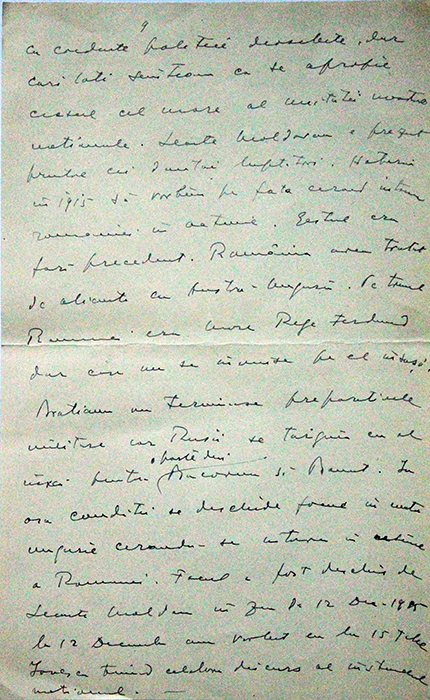 9
cu credinte politice deosebite, dar
cari toti simteam ca se apropie
ceasul cel mare al unitatii noastre
nationale. Leonte Moldovan e prezent
printre cei dintai luptatori. Hotarim
in 1915 să vorbim pe fata cerand intrarea
romaniei in actiune. Gestul era
fara precedent. România avea tratat
de alianta cu Austro-Ungaria. Pe tronul
Romaniei era Mare Rege Ferdinand
dar care nu se invinse pe el insusi.
Bratianu nu terminase preparativele
militare iar Rusii se targuiau cu el
inca pentru o parte din Bucovina si Banat. In
asa conditii se deschide focul in
ungurie cerandu-se intrarea in actiune
a Romaniei. Focul a fost deschis de
Leonte Moldovan in ziua de 12 Dec. 1915
la 12 Decembrie am vorbit eu la 15 Take
Ionescu tinand celebrul discurs al instinctului
national. —